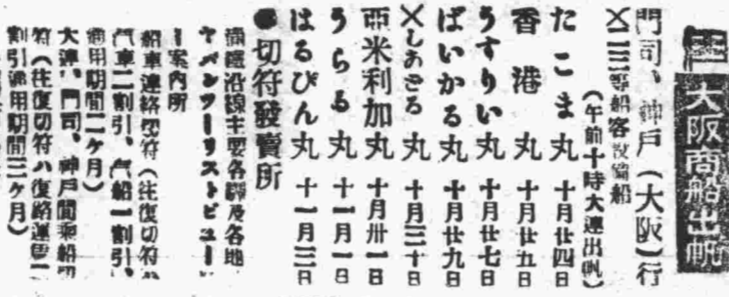 大阪商船出帆
門司、神戸(大阪)行
×二三等船客設備船
(午前十時大連出帆)
たこま丸 十月廿四日
香港丸 十月廿五日
うすりい丸 十月廿七日
ばいかる丸 十月廿九日
×しあとる丸 十月三十日
亞米利加丸 十月卅一日
うらる丸 十一月一日
はるぴん丸 十一月三日
●切符發賣所
滿鐵沿線主要各驛及各地
ヤパンツーリストビユーロ
ー案内所
船車連絡切符(往復切符ハ
汽車二割引、汽船一割引、
通用期間二ヶ月)
大連、門司、神戸間乘船切
符(往復切符ハ復路運賃二
割引通用期間三ヶ月)